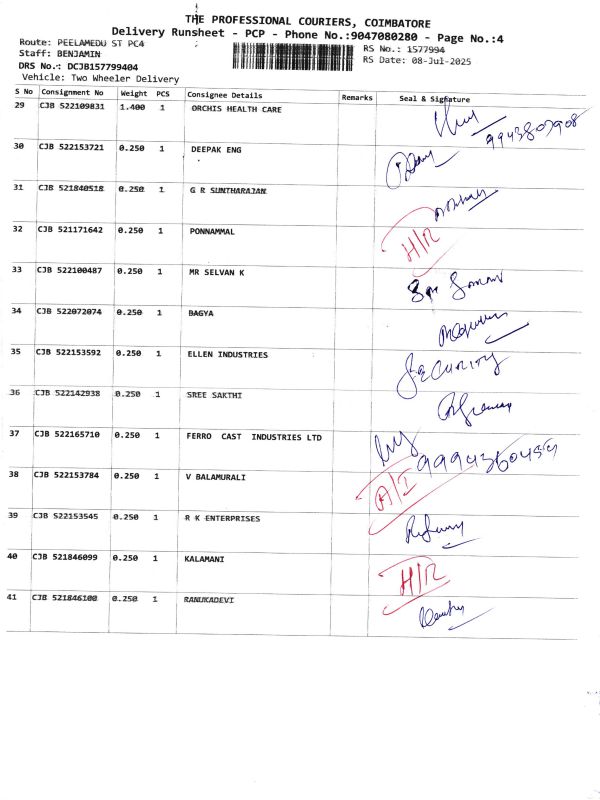 THE PROFESSIONAL COURIERS, COIMBATORE
Delivery Runsheet - PCP - Phone No.:9047080280 - Page No.:4
Route: PEELAMEDU ST PC4
RS No.: 1577994
Staff: BENJAMIN
RS Date: 08-Jul-2025
DRS No.: DCJB157799404
Vehicle: Two Wheeler Delivery
S No Consignment No Weight PCS Consignee Details Remarks Seal & Signature
29 CJB 522109831 1.400 1 ORCHIS HEALTH CARE
9943807908
30 CJB 522153721 0.250 1 DEEPAK ENG
31 CJB 521840518 0.250 1 G R SUNTHARAJAN
32 CJB 521171642 0.250 1 PONNAMMAL H/R
33 CJB 522100487 0.250 1 MR SELVAN K
34 CJB 522072074 0.250 1 BAGYA
35 CJB 522153592 0.250 1 ELLEN INDUSTRIES SECURITY
36 CJB 522142938 0.250 1 SREE SAKTHI
37 CJB 522165710 0.250 1 FERRO CAST INDUSTRIES LTD
38 CJB 522153784 0.250 1 V BALAMURALI A/I
39 CJB 522153545 0.250 1 R K ENTERPRISES
40 CJB 521846099 0.250 1 KALAMANI H/R
41 CJB 521846100 0.250 1 RANUKADEVI